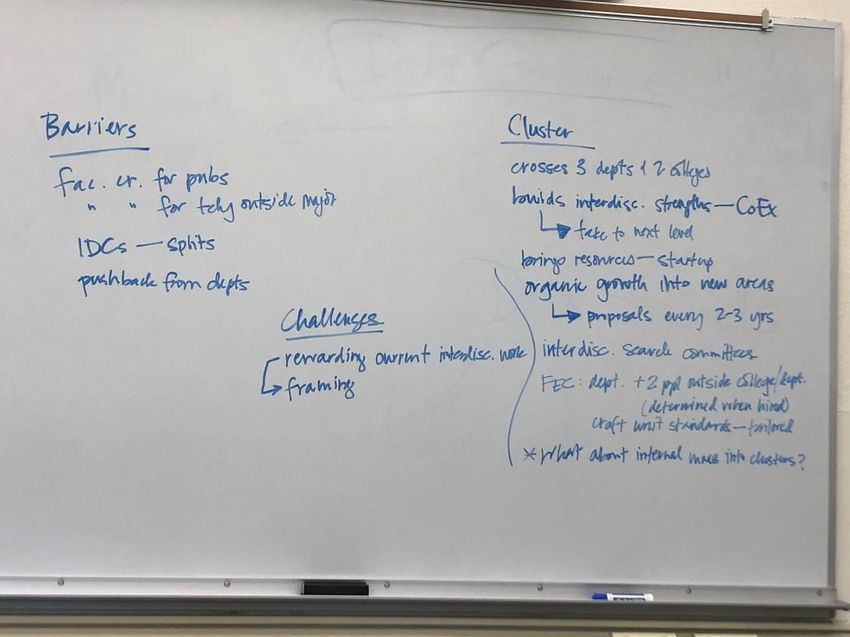 Barriers
fac. cr. for pubs
" " for tchg outside major
IDCs — splits
pushback from depts
Challenges
rewarding current interdisc. work
framing
Cluster
crosses 3 depts & 2 colleges
builds interdisc. strengths — CoEx
take to next level
brings resources — startup
organic growth into new areas
proposals every 2-3 yrs
interdisc. search committees
FEC: dept. +2 ppl outside college/dept.
(determined when hired)
craft unit standards — tailored
* What about internal moves into clusters?